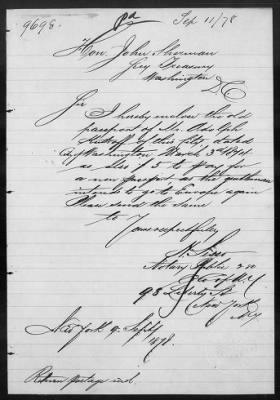 9698.
Sep 11/78
Hon. John Sherman
Secy Treasury
Washington
D.C
Sir
I hereby enclose the old
passport of Mr. Adolph
of this City dated
Washington March 3d 1874
as also $5 to pay for
a new passport as this gentleman
intends to go to Europe again
Please send the same
to
Yours respectfully
Notary Public
98 Liberty St
New York
N.Y
New York Sept
1878.
Return postage incl.